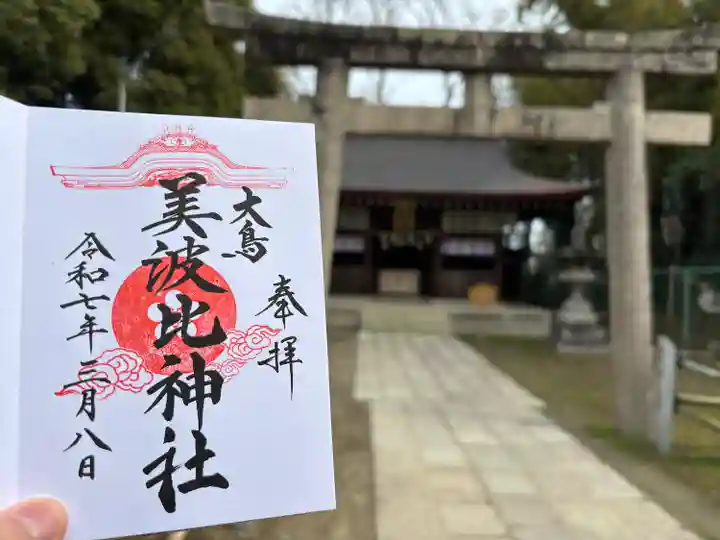 奉拝
大鳥
美波比神社
令和七年三月八日